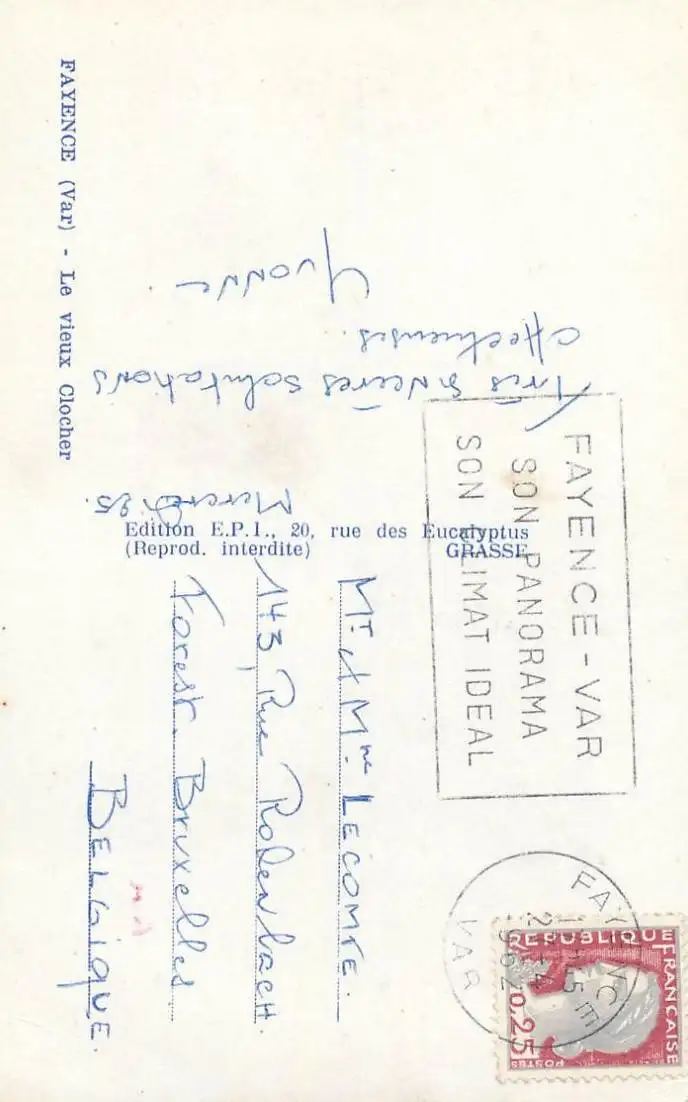 FAYENCE (Var) - Le vieux Clocher
Mercredi 25.
Très sincères salutations
affectueuses.
Yvonne.
Edition E.P.I., 20, rue des Eucalyptus
(Reprod. interdite) GRASSE
FAYENCE-VAR
SON PANORAMA
SON CLIMAT IDEAL
FAYENCE
VAR
1962
REPUBLIQUE FRANCAISE
0,25
POSTES
Mr & Mme LECOMTE.
143, Rue Rodenbach.
Forest. Bruxelles
BELGIQUE.